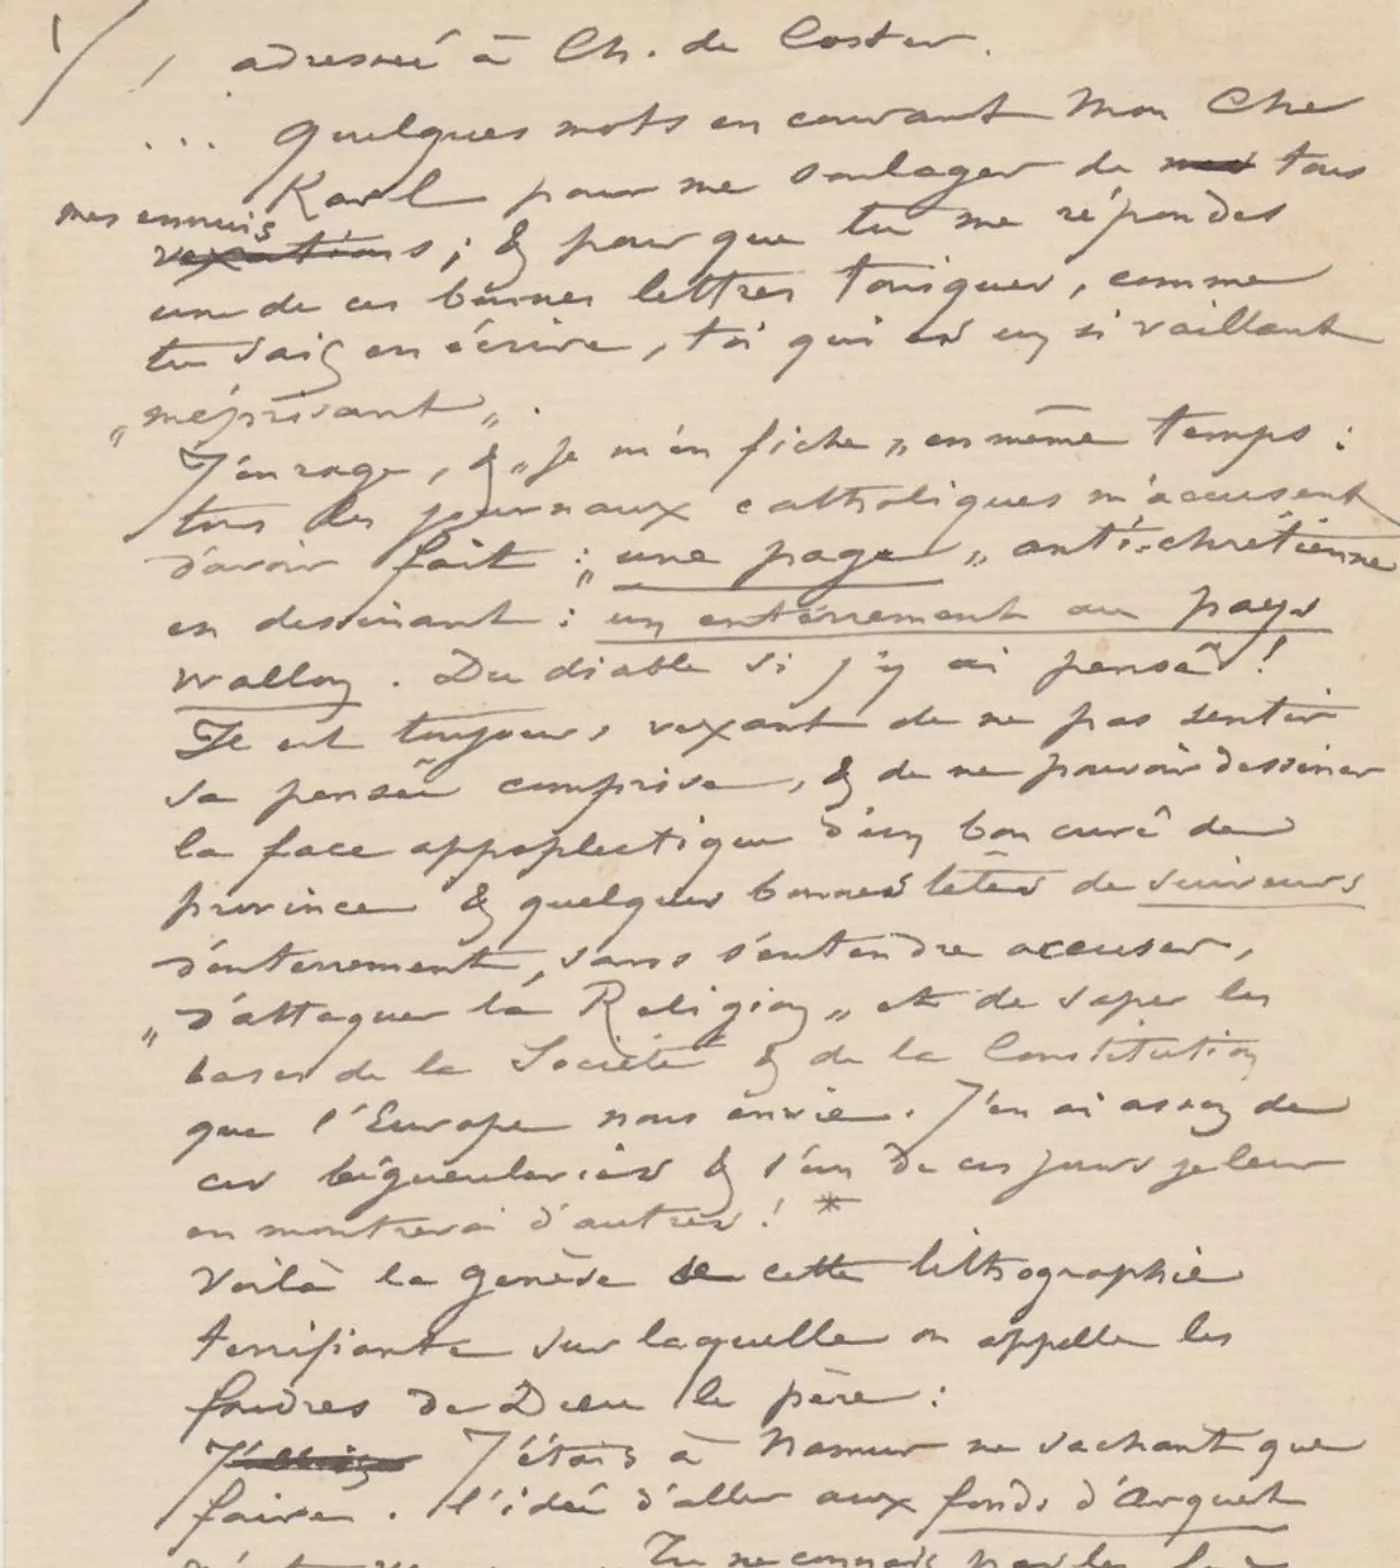 1/
adressée à Ch. de Coster.
... Quelques mots en courant Mon Cher
Karl pour me soulager de mes tous
mes ennuis
vexations ; & pour que tu me répondes
une de ces bonnes lettres toniques, comme
tu sais en écrire, toi qui es un si vaillant
„méprisant„.
J'enrage, & „je m'en fiche„ en même temps :
tous les journaux catholiques m'accusent
d'avoir fait : „une page„ anti-chrétienne
en dessinant : un enterrement au pays
wallon. Du diable si j'y ai pensé !
Il est toujours vexant de ne pas sentir
sa pensée comprise, & de ne pouvoir dessiner
la face appoplectique d'un bon curé de
province & quelques bonnes têtes de suiveurs
d'enterrement, sans s'entendre accuser,
„d'attaquer la Religion„ et de saper les
bases de la Société & de la Constitution
que l'Europe nous envie. J'en ai assez de
ces bégueuleries & l'un de ces jours je leur
en montrerai d'autres ! *
Voilà la genèse de cette lithographie
terrifiante sur laquelle on appelle les
foudres de Dieu le père :
J'étais à Namur ne sachant que
faire. l'idée d'aller aux fonds d'Arquet
Tu ne connais pas les